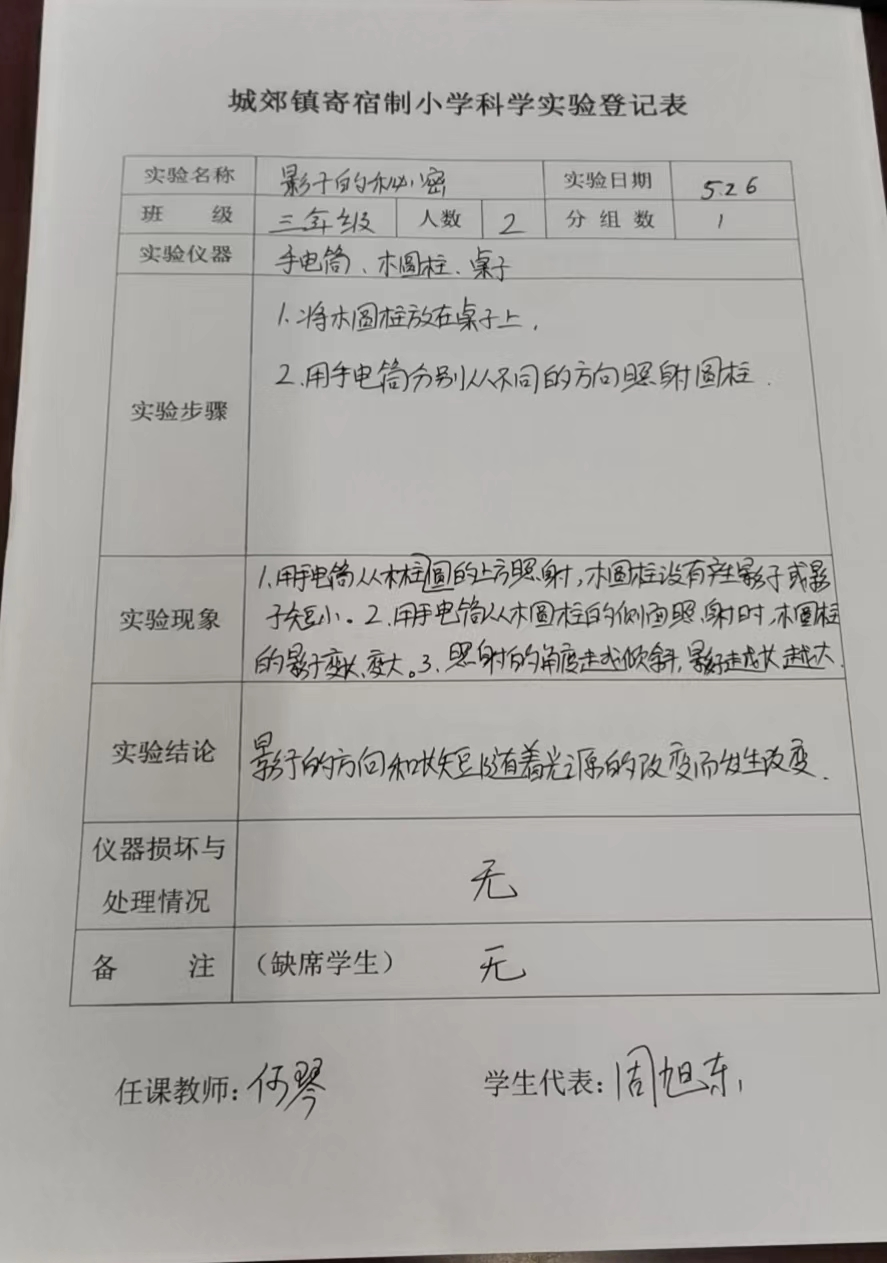 城郊镇寄宿制小学科学实验登记表
实验名称 影子的秘密 实验日期 5.26
班 级 三年级 人数 2 分组数 1
实验仪器 手电筒、木圆柱、桌子
实验步骤
1.将木圆柱放在桌子上,
2.用手电筒分别从不同的方向照射圆柱.
实验现象
1.用手电筒从木柱圆的上方照射,木圆柱没有产生影子或影
子短小。2.用手电筒从木圆柱的侧面照射时,木圆柱
的影子变长、变大。3.照射的角度越倾斜,影子越长越大.
实验结论
影子的方向和长短随着光源的改变而发生改变.
仪器损坏与
处理情况
无
备 注 (缺席学生) 无
任课教师:何琴 学生代表:周旭东